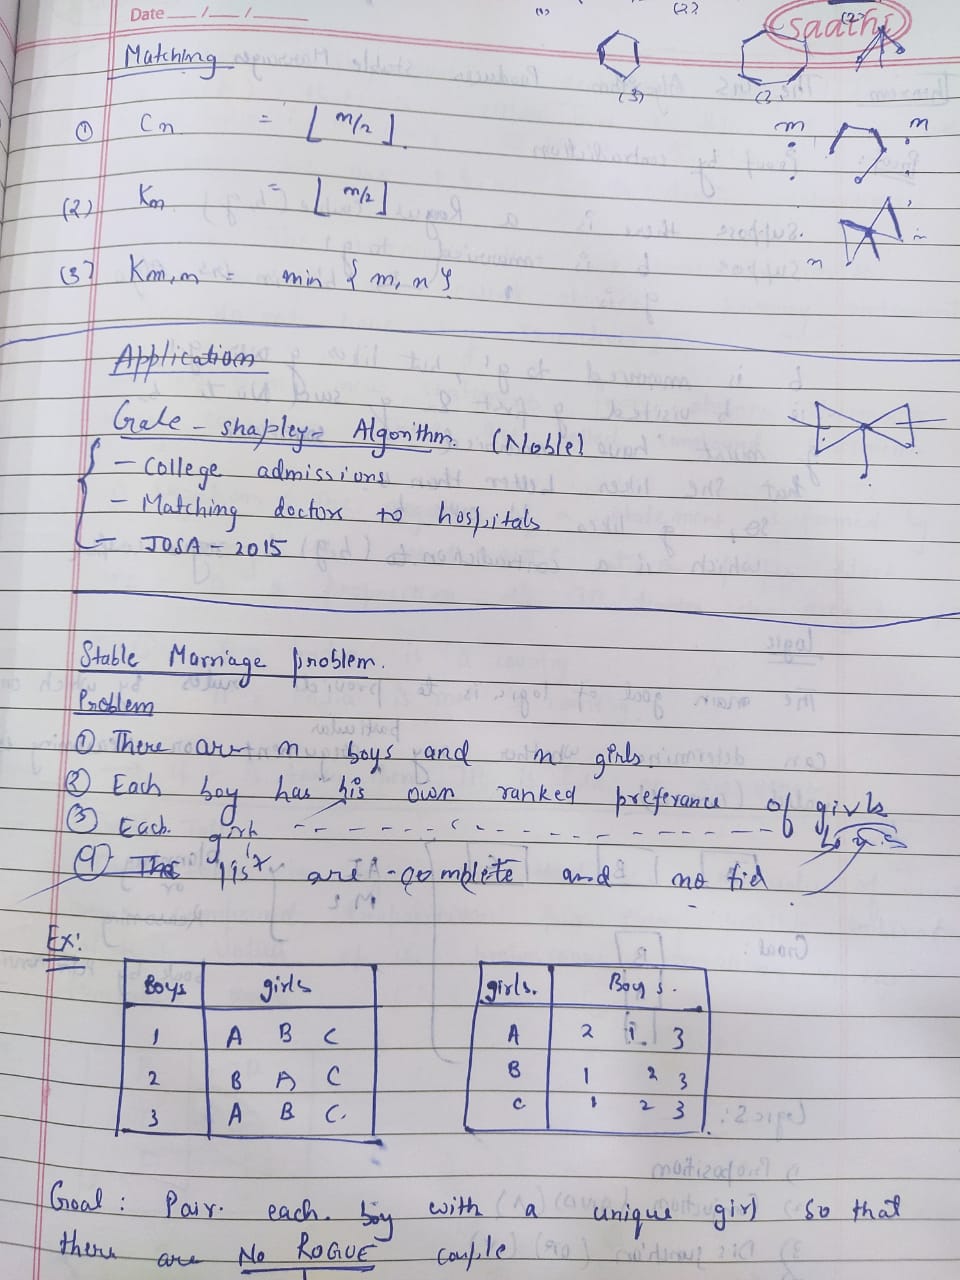 Date __/__/__
saathi
(1)
(2)
(2)
Matching
(3)
(3)
① Cn = ⌊n/2⌋.
m
n
(2) Kn = ⌊n/2⌋
n
(3) Km,n = min {m, n}
Application
Gale - shapley Algorithm. (Noble)
- College admissions
- Matching doctors to hospitals
- JOSA - 2015
Stable Marriage problem.
Problem
① There are n boys and n girls
② Each boy has his own ranked preferance of girls
③ Each girl - - - - - - - - - - - - - - of boys
④ The list are complete and no tid
Ex:
Boys girls
1 A B C
2 B A C
3 A B C.
girls. Boys.
A 2 1. 3
B 1 2 3
C 1 2 3
Goal: Pair each boy with a unique girl so that
there are No ROGUE couple